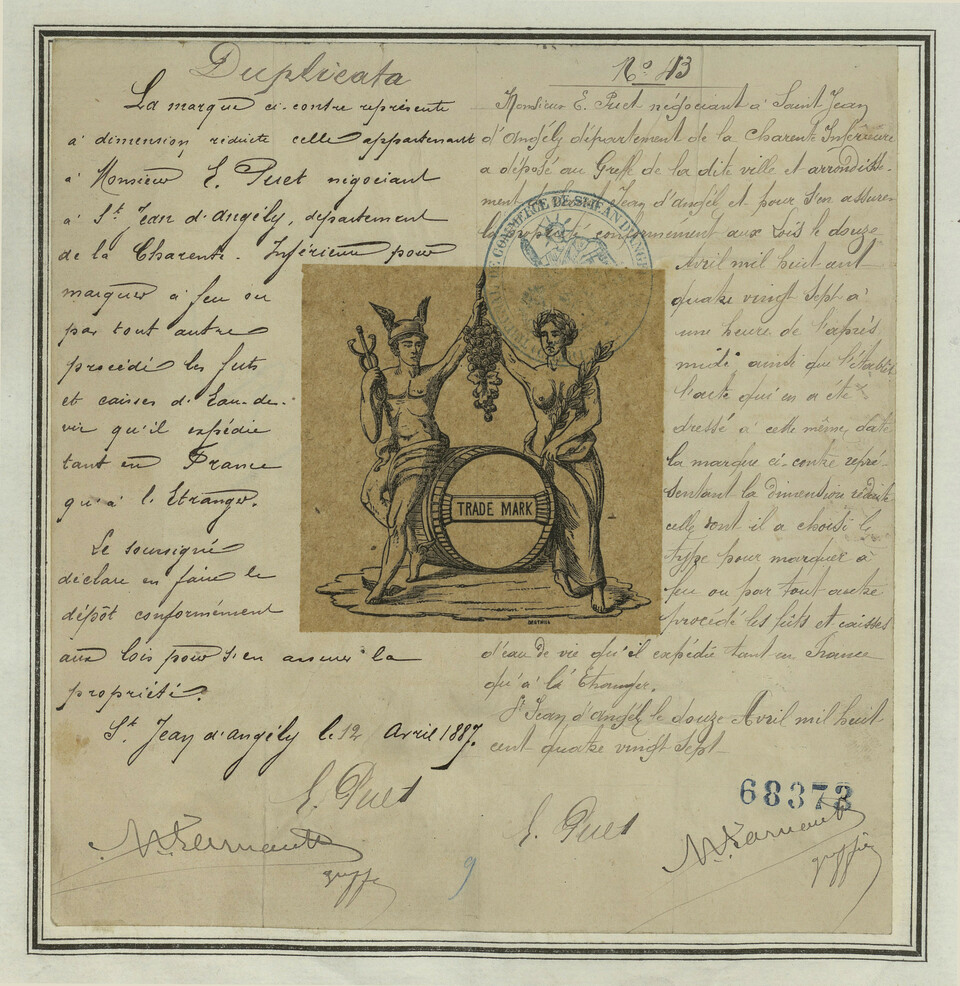 Duplicata
La marque ci-contre représente
à dimension réduite celle appartenant
à Monsieur E. Puet négociant
à St Jean d'Angély, département
de la Charente-Inférieure pour
marquer à feu ou
par tout autre
procédé les futs
et caisses d'Eau-de-
vie qu'il expédie
tant en France
qu'à l'Etranger.
Le soussigné
déclare en faire le
dépôt conformément
aux lois pour s'en assurer la
propriété.
St Jean d'Angély le 12 Avril 1887.
E. Puet
No 43
Monsieur E. Puet négociant à Saint Jean
d'Angély département de la Charente Inférieure
a déposé au Greffe de la dite ville et arrondisse-
ment de Saint Jean d'Angély et pour s'en assurer
la propriété conformément aux Lois le douze
Avril mil huit cent
quatre vingt sept à
une heure de l'après
midi ainsi que l'établit
l'acte qui en a été
dressé à cette même date
la marque ci-contre repré-
sentant la dimension réduite
celle dont il a choisi le
type pour marquer à
feu ou par tout autre
procédé les futs et caisses
d'eau de vie qu'il expédie tant en France
qu'à l'Etranger.
St Jean d'Angély le douze Avril mil huit
cent quatre vingt sept
E. Puet
DE COMMERCE DE ST JEAN D'ANGELY
TRADE MARK
68373
9